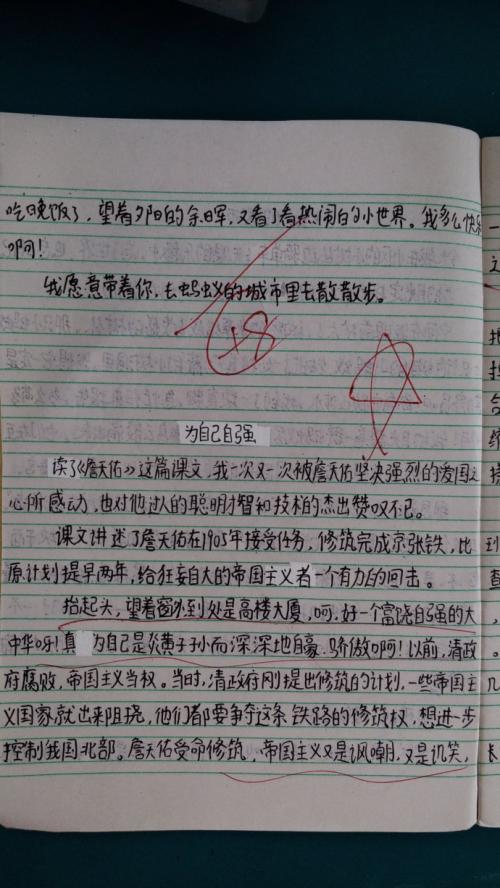 吃晚饭了,望着夕阳的余晖,又看了看热闹的小世界。我多么快乐
啊!
我愿意带着你,去蚂蚁的城市里去散散步。
+8
为自己自强
读了《詹天佑》这篇课文,我一次又一次被詹天佑坚决强烈的爱国之
心所感动,也对他过人的聪明才智和技术的杰出赞叹不已。
课文讲述了詹天佑在1905年接受任务,修筑完成京张铁,比
原计划提早两年,给狂妄自大的帝国主义者一个有力的回击。
抬起头,望着窗外到处是高楼大厦,呵,好一个富饶自强的大
中华呀!真为自己是炎黄子孙而深深地自豪、骄傲啊!以前,清政
府腐败,帝国主义当权。当时,清政府刚提出修筑的计划,一些帝国主
义国家就出来阻挠,他们都要争夺这条铁路的修筑权,想进一步
控制我国北部。詹天佑受命修筑,帝国主义又是讽嘲,又是讥笑,